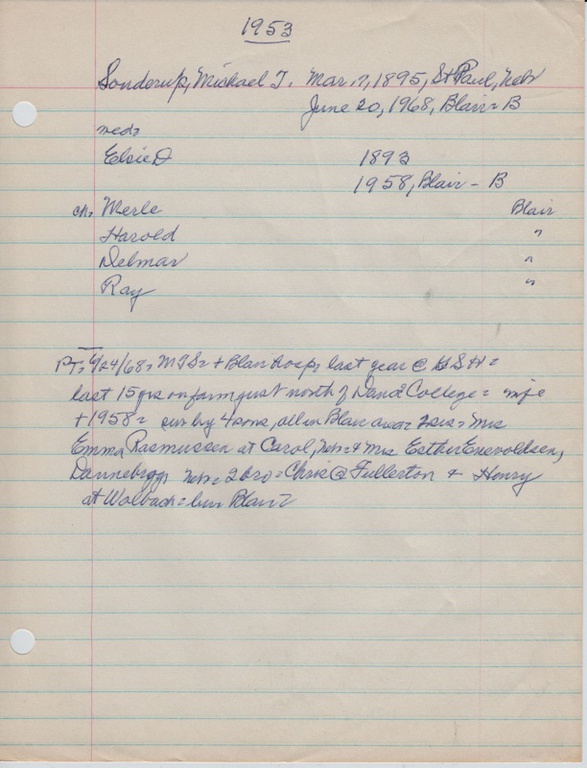 1953
Sonderup, Michael T. Mar. 7, 1895, St Paul, Nebr
June 20, 1968, Blair - B
med:
Elsie D 1893
1958, Blair - B
ch. Merle Blair
Harold "
Delmar "
Ray "
PT: 6/24/68 = MTS = + Blair hosp, last year @ GSH =
last 15 yrs on farm just north of Dana College = wife
+ 1958 = sur by 4 sons, all in Blair area = 2 sis = Mrs
Emma Rasmussen at Carol, Neb = & Mrs Esther Enevoldsen,
Dannebrog, Neb = 2 bro = Chris @ Fullerton & Henry
at Wolbach = bur Blair =